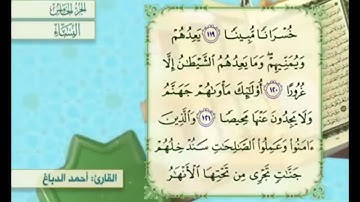 الجزء الخامس
النساء
خُسْرَانًا مُّبِينًا ١١٩ يَعِدُهُمْ
وَيُمَنِّيهِمْ وَمَا يَعِدُهُمُ ٱلشَّيْطَٰنُ إِلَّا
غُرُورًا ١٢٠ أُو۟لَٰٓئِكَ مَأْوَىٰهُمْ جَهَنَّمُ
وَلَا يَجِدُونَ عَنْهَا مَحِيصًا ١٢١ وَٱلَّذِينَ
ءَامَنُوا۟ وَعَمِلُوا۟ ٱلصَّٰلِحَٰتِ سَنُدْخِلُهُمْ
جَنَّٰتٍ تَجْرِى مِن تَحْتِهَا ٱلْأَنْهَٰرُ
القارئ: أحمد الدباغ